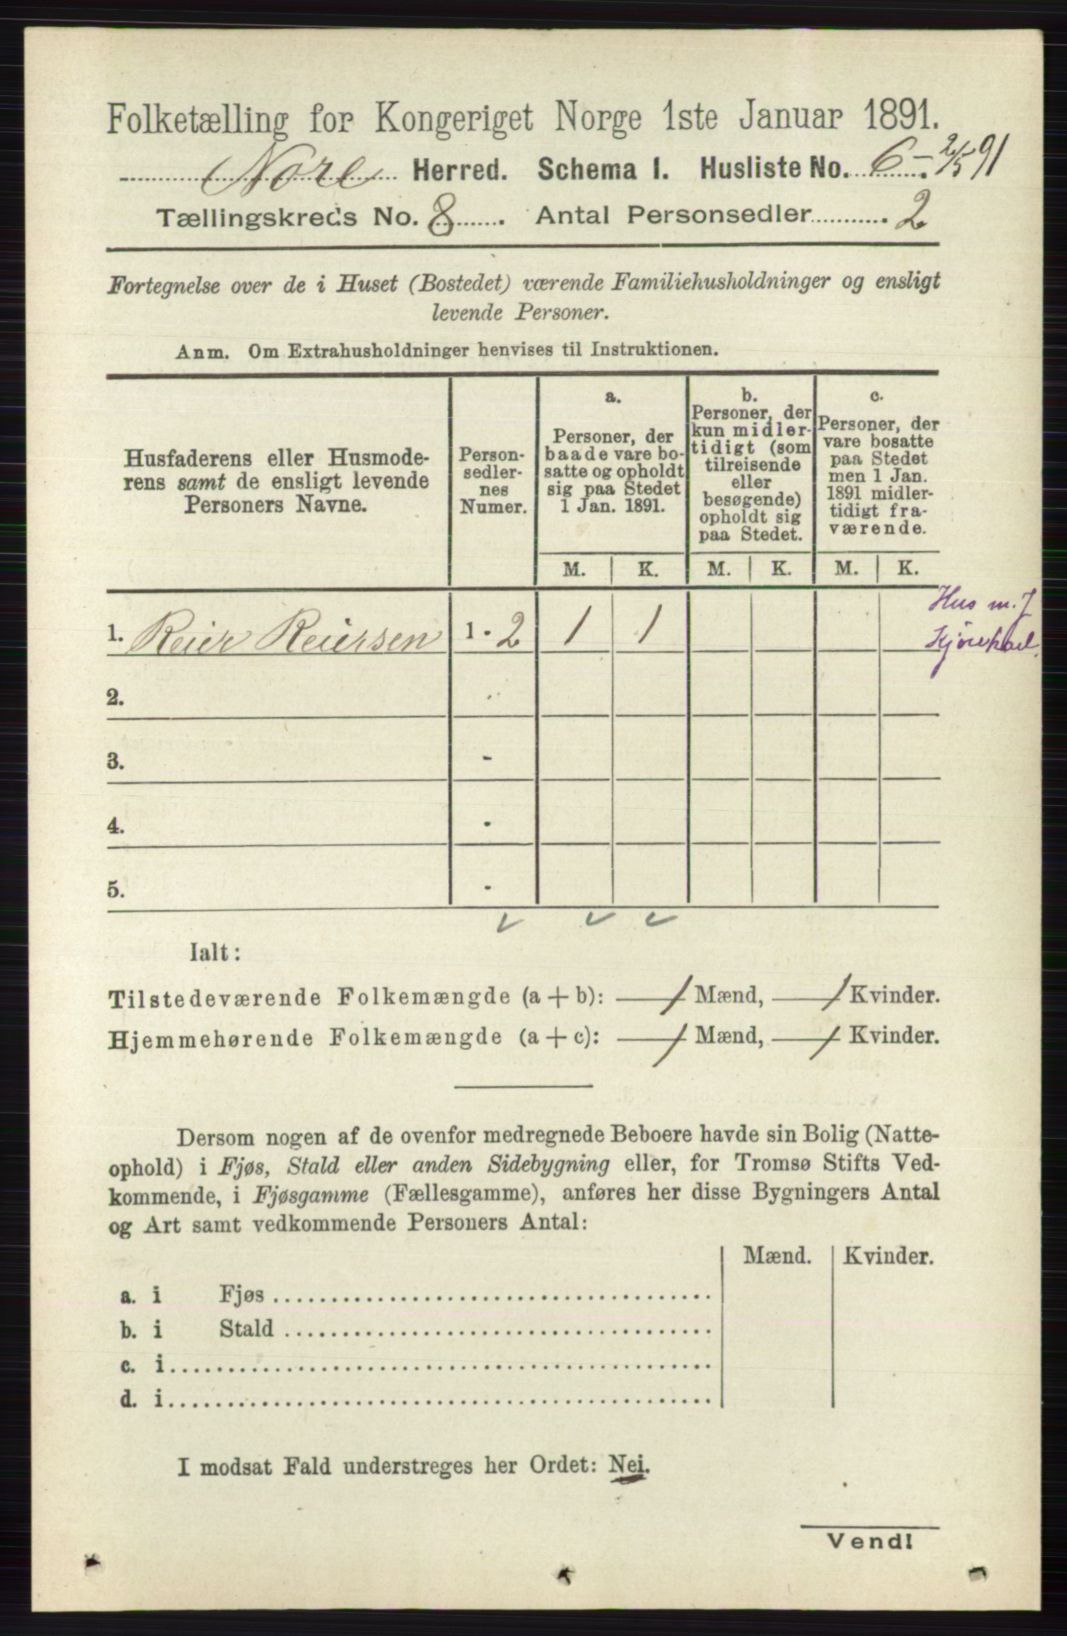 Folketælling for Kongeriget Norge 1ste Januar 1891.
Nore Herred. Schema I. Husliste No. 6. 2/5 91
Tællingskreds No. 8. Antal Personsedler 2
Fortegnelse over de i Huset (Bostedet) værende Familiehusholdninger og ensligt
levende Personer.
Anm. Om Extrahusholdninger henvises til Instruktionen.
Husfaderens eller Husmode-
rens samt de ensligt levende
Personers Navne.
Person-
sedler-
nes
Numer.
a.
Personer, der
baade vare bo-
satte og opholdt
sig paa Stedet
1 Jan. 1891.
b.
Personer, der
kun midler-
tidigt (som
tilreisende
eller
besøgende)
opholdt sig
paa Stedet.
c.
Personer, der
vare bosatte
paa Stedet
men 1 Jan.
1891 midler-
tidigt fra-
værende.
M. K. M. K. M. K.
1. Reier Reiersen 1 - 2 1 1
Hus m. J
2.
3. -
4. -
5. -
Ialt:
Tilstedeværende Folkemængde (a + b): 1 Mænd, 1 Kvinder.
Hjemmehørende Folkemængde (a + c): 1 Mænd, 1 Kvinder.
Dersom nogen af de ovenfor medregnede Beboere havde sin Bolig (Natte-
ophold) i Fjøs, Stald eller anden Sidebygning eller, for Tromsø Stifts Ved-
kommende, i Fjøsgamme (Fællesgamme), anføres her disse Bygningers Antal
og Art samt vedkommende Personers Antal:
Mænd. Kvinder.
a. i Fjøs
b. i Stald
c. i
d. i
I modsat Fald understreges her Ordet: Nei.
Vend!